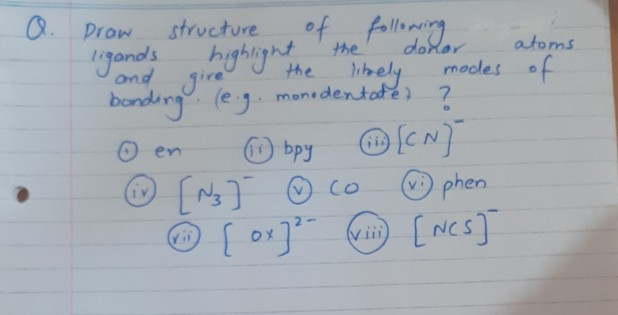 Q. Draw structure of following
ligands highlight the donor atoms
and give the likely modes of
bonding. (e.g. monodentate) ?
(i) en (ii) bpy (iii) [CN]⁻
(iv) [N₃]⁻ (v) CO (vi) phen
(vii) [ox]²⁻ (viii) [NCS]⁻